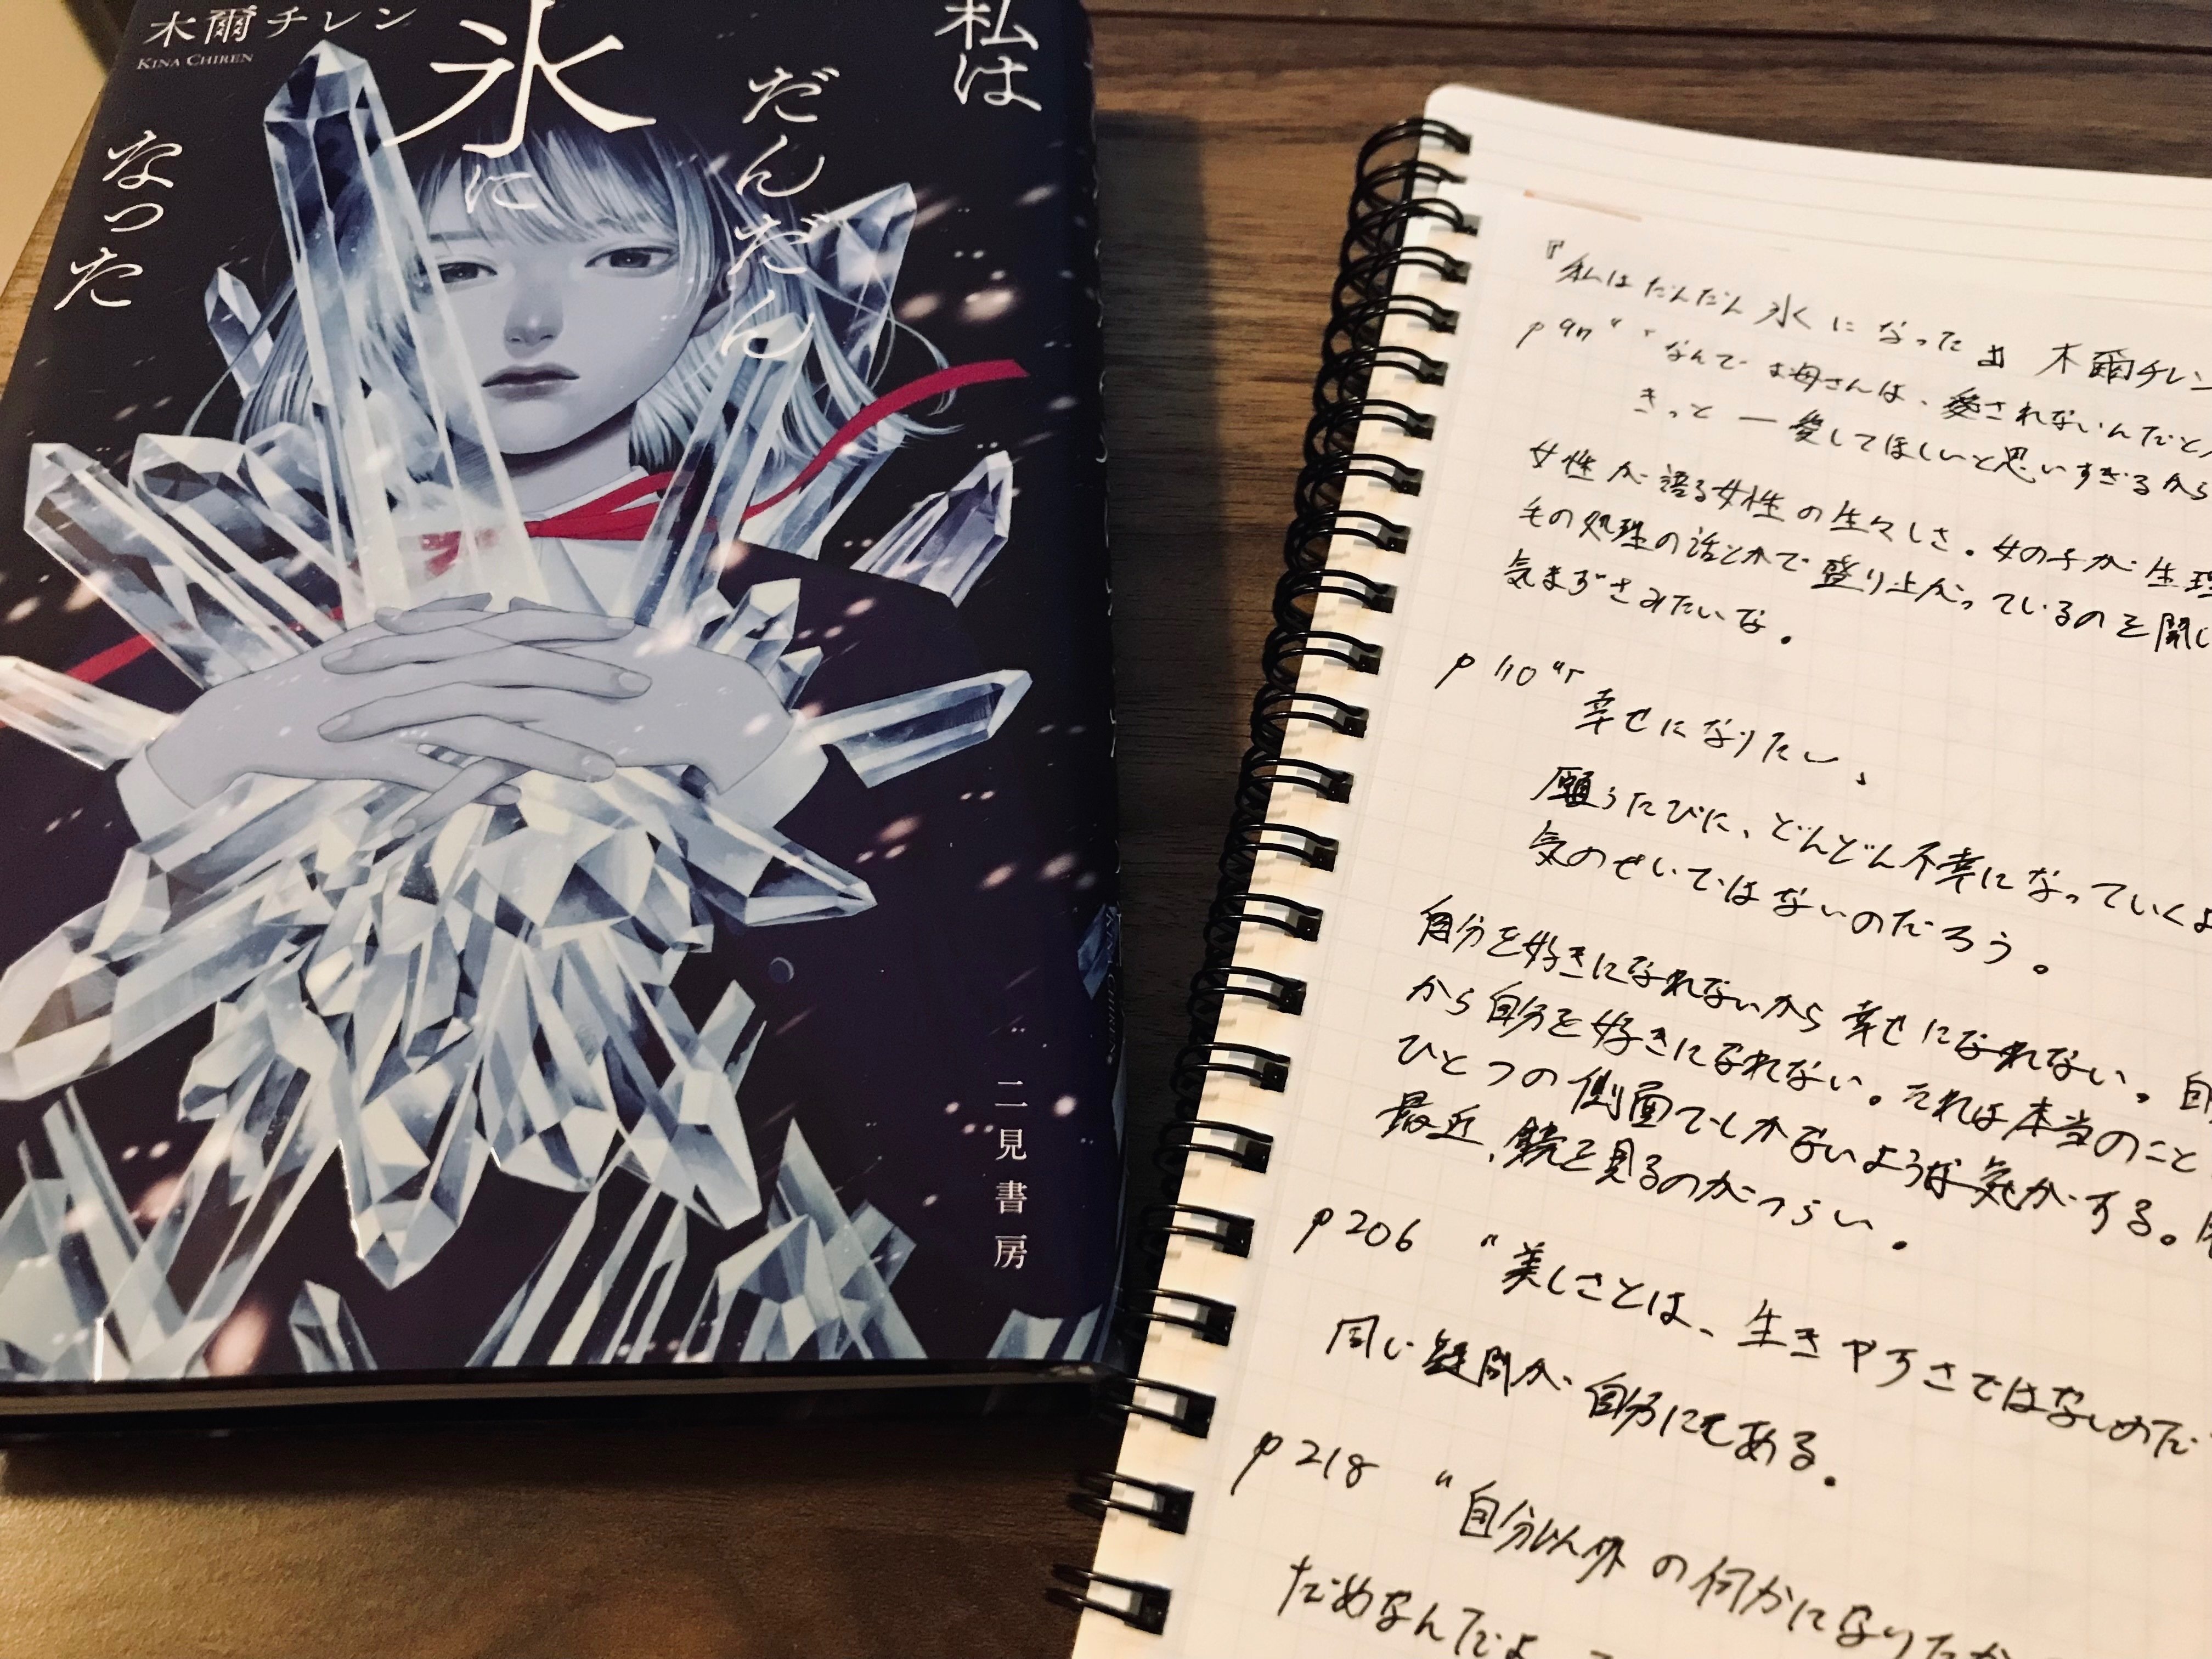 木爾チレン
KINA CHIREN
私は
だんだん
氷に
なった
二見書房
『私はだんだん氷になった』 木爾チレン
なんでお母さんは、愛されないんだと
きっと ー 愛してほしいと思いすぎるから
女性が語る女性の生々しさ。女の子が生理
毛の処理の話とかで盛り上がっているのを聞い
気まずさみたいな。
p110 "「
幸せになりたい、
願うたびに、どんどん不幸になっていくよ
気のせいではないのだろう。
自分を好きになれないから幸せになれない。自
から自分を好きになれない。それは本当のこと
ひとつの側面でしかないような気がする。
最近、鏡を見るのがつらい。
p206 "美しさとは、生きやすさではないのだ
同じ疑問が自分にもある。
p218 "自分以外の何かになりたか
だめなんだよ